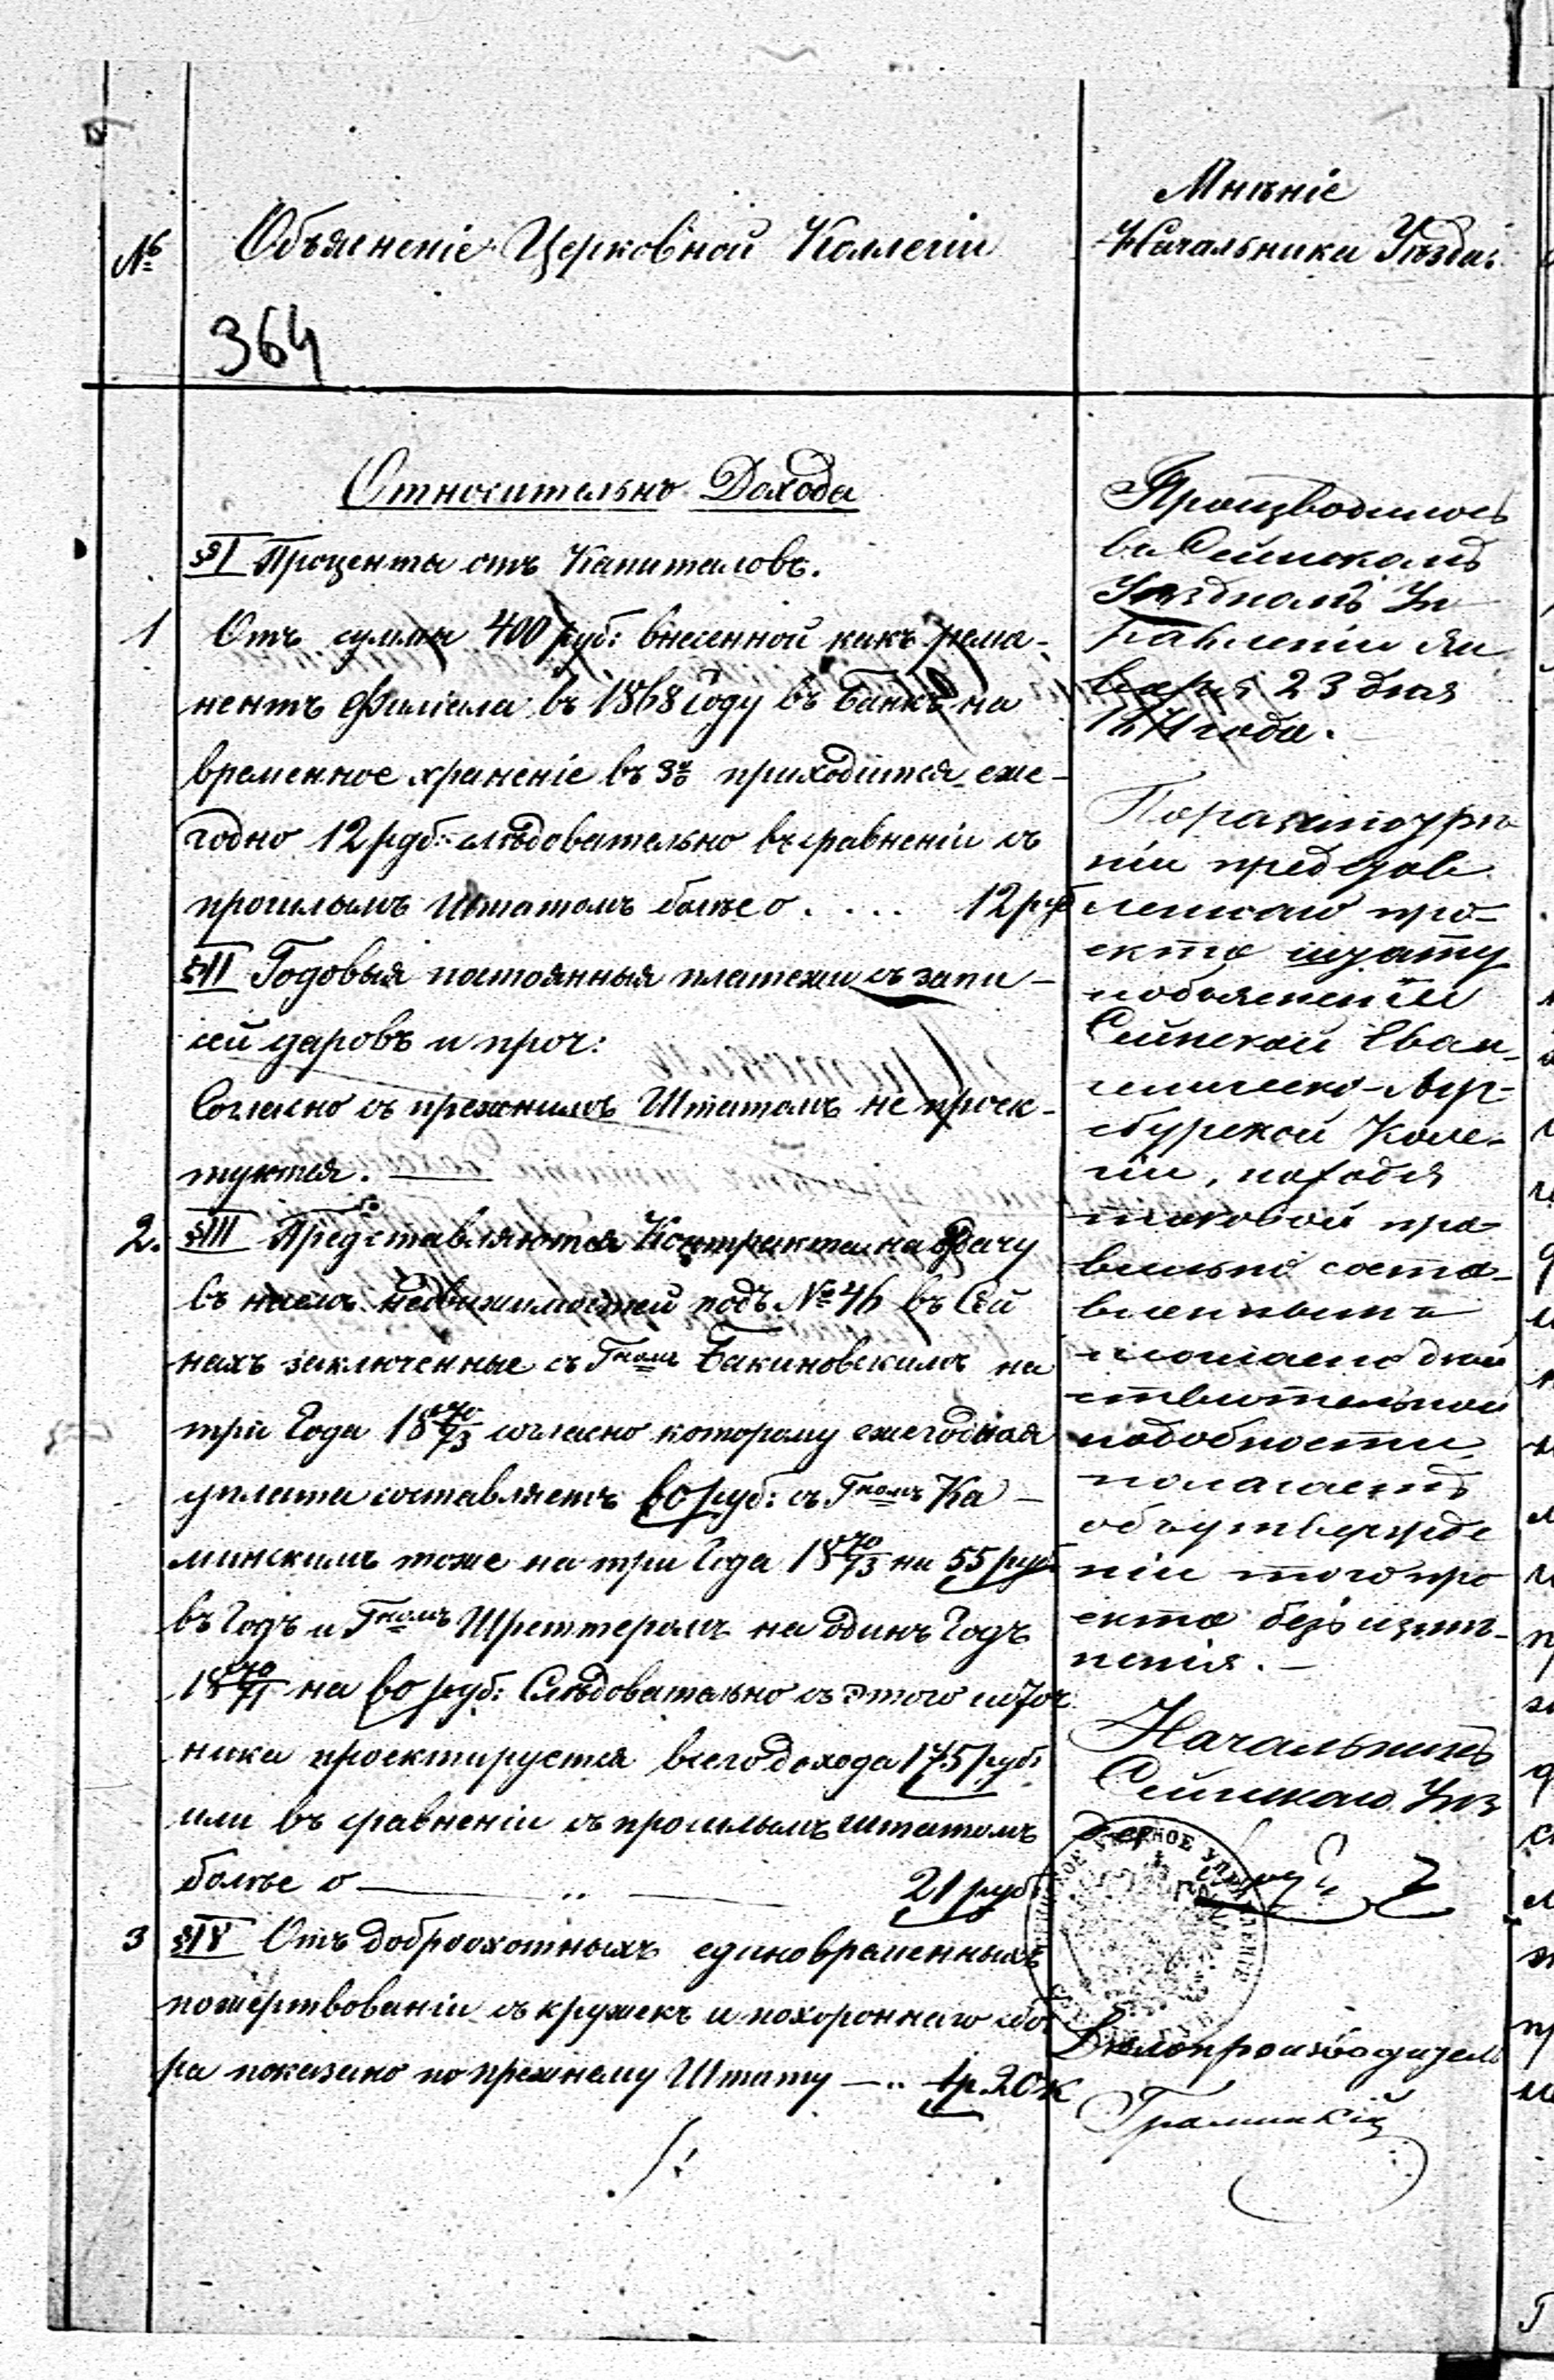 №
Объясненіе Церковной Коллегіи
364
Мнѣніе
Начальника Уѣзда:
Относительно Дохода
§I Проценты отъ Капиталовъ.
1 Отъ суммы 400 руб: внесенной какъ рема-
нентъ Филіала въ 1868 году въ Банкъ на
временное храненіе въ 3% приходится еже-
годно 12 руб: слѣдовательно въ сравненіи съ
прошлымъ Штатомъ болѣе о . . . . 12 руб
§II Годовыя постоянныя платежи съ запи-
сей даровъ и проч:
Согласно съ прежнимъ Штатомъ не проек-
туются.
2. §III Представляются Контракты на отдачу
въ наемъ недвижимостей подъ № 46 въ Сей
нахъ заключенные съ Гномъ Бакиновскимъ на
три Года 1870/73 согласно которому ежегодная
уплата составляетъ 60 руб: съ Гномъ Ка-
минскимъ тоже на три Года 1870/73 на 55 руб
въ Годъ и Гномъ Шреттеромъ на одинъ Годъ
1870/71 на 60 руб: Слѣдовательно съ этого источ
ника проектируется всего дохода 175 руб:
или въ сравненіи съ прошлымъ штатомъ
болѣе о — „ — 21 руб:
3 §IV Отъ доброохотныхъ единовременныхъ
пожертвованіи съ кружекъ и похороннаго сбо
ра показано по прежнему Штату — „ 4р. 20 к
Производилось
въ Сейнскомъ
Уѣздномъ Уп
равленіи Ян
варя 23 дня
1871 года.
ніи представ
леннаго про-
екта штату
и объясненій
Сейнской Еван-
гелическо-Аугс-
бургской Колле-
гіи, находя
таковой пра-
вильно соста-
вленнымъ
и согласно дѣй
ствительной
надобности
полагаетъ
объ утвержде
ніи того про
екта безъ измѣ-
ненія. —
Начальникъ
Сейнскаго Уѣз
да
Дѣлопроизводитель